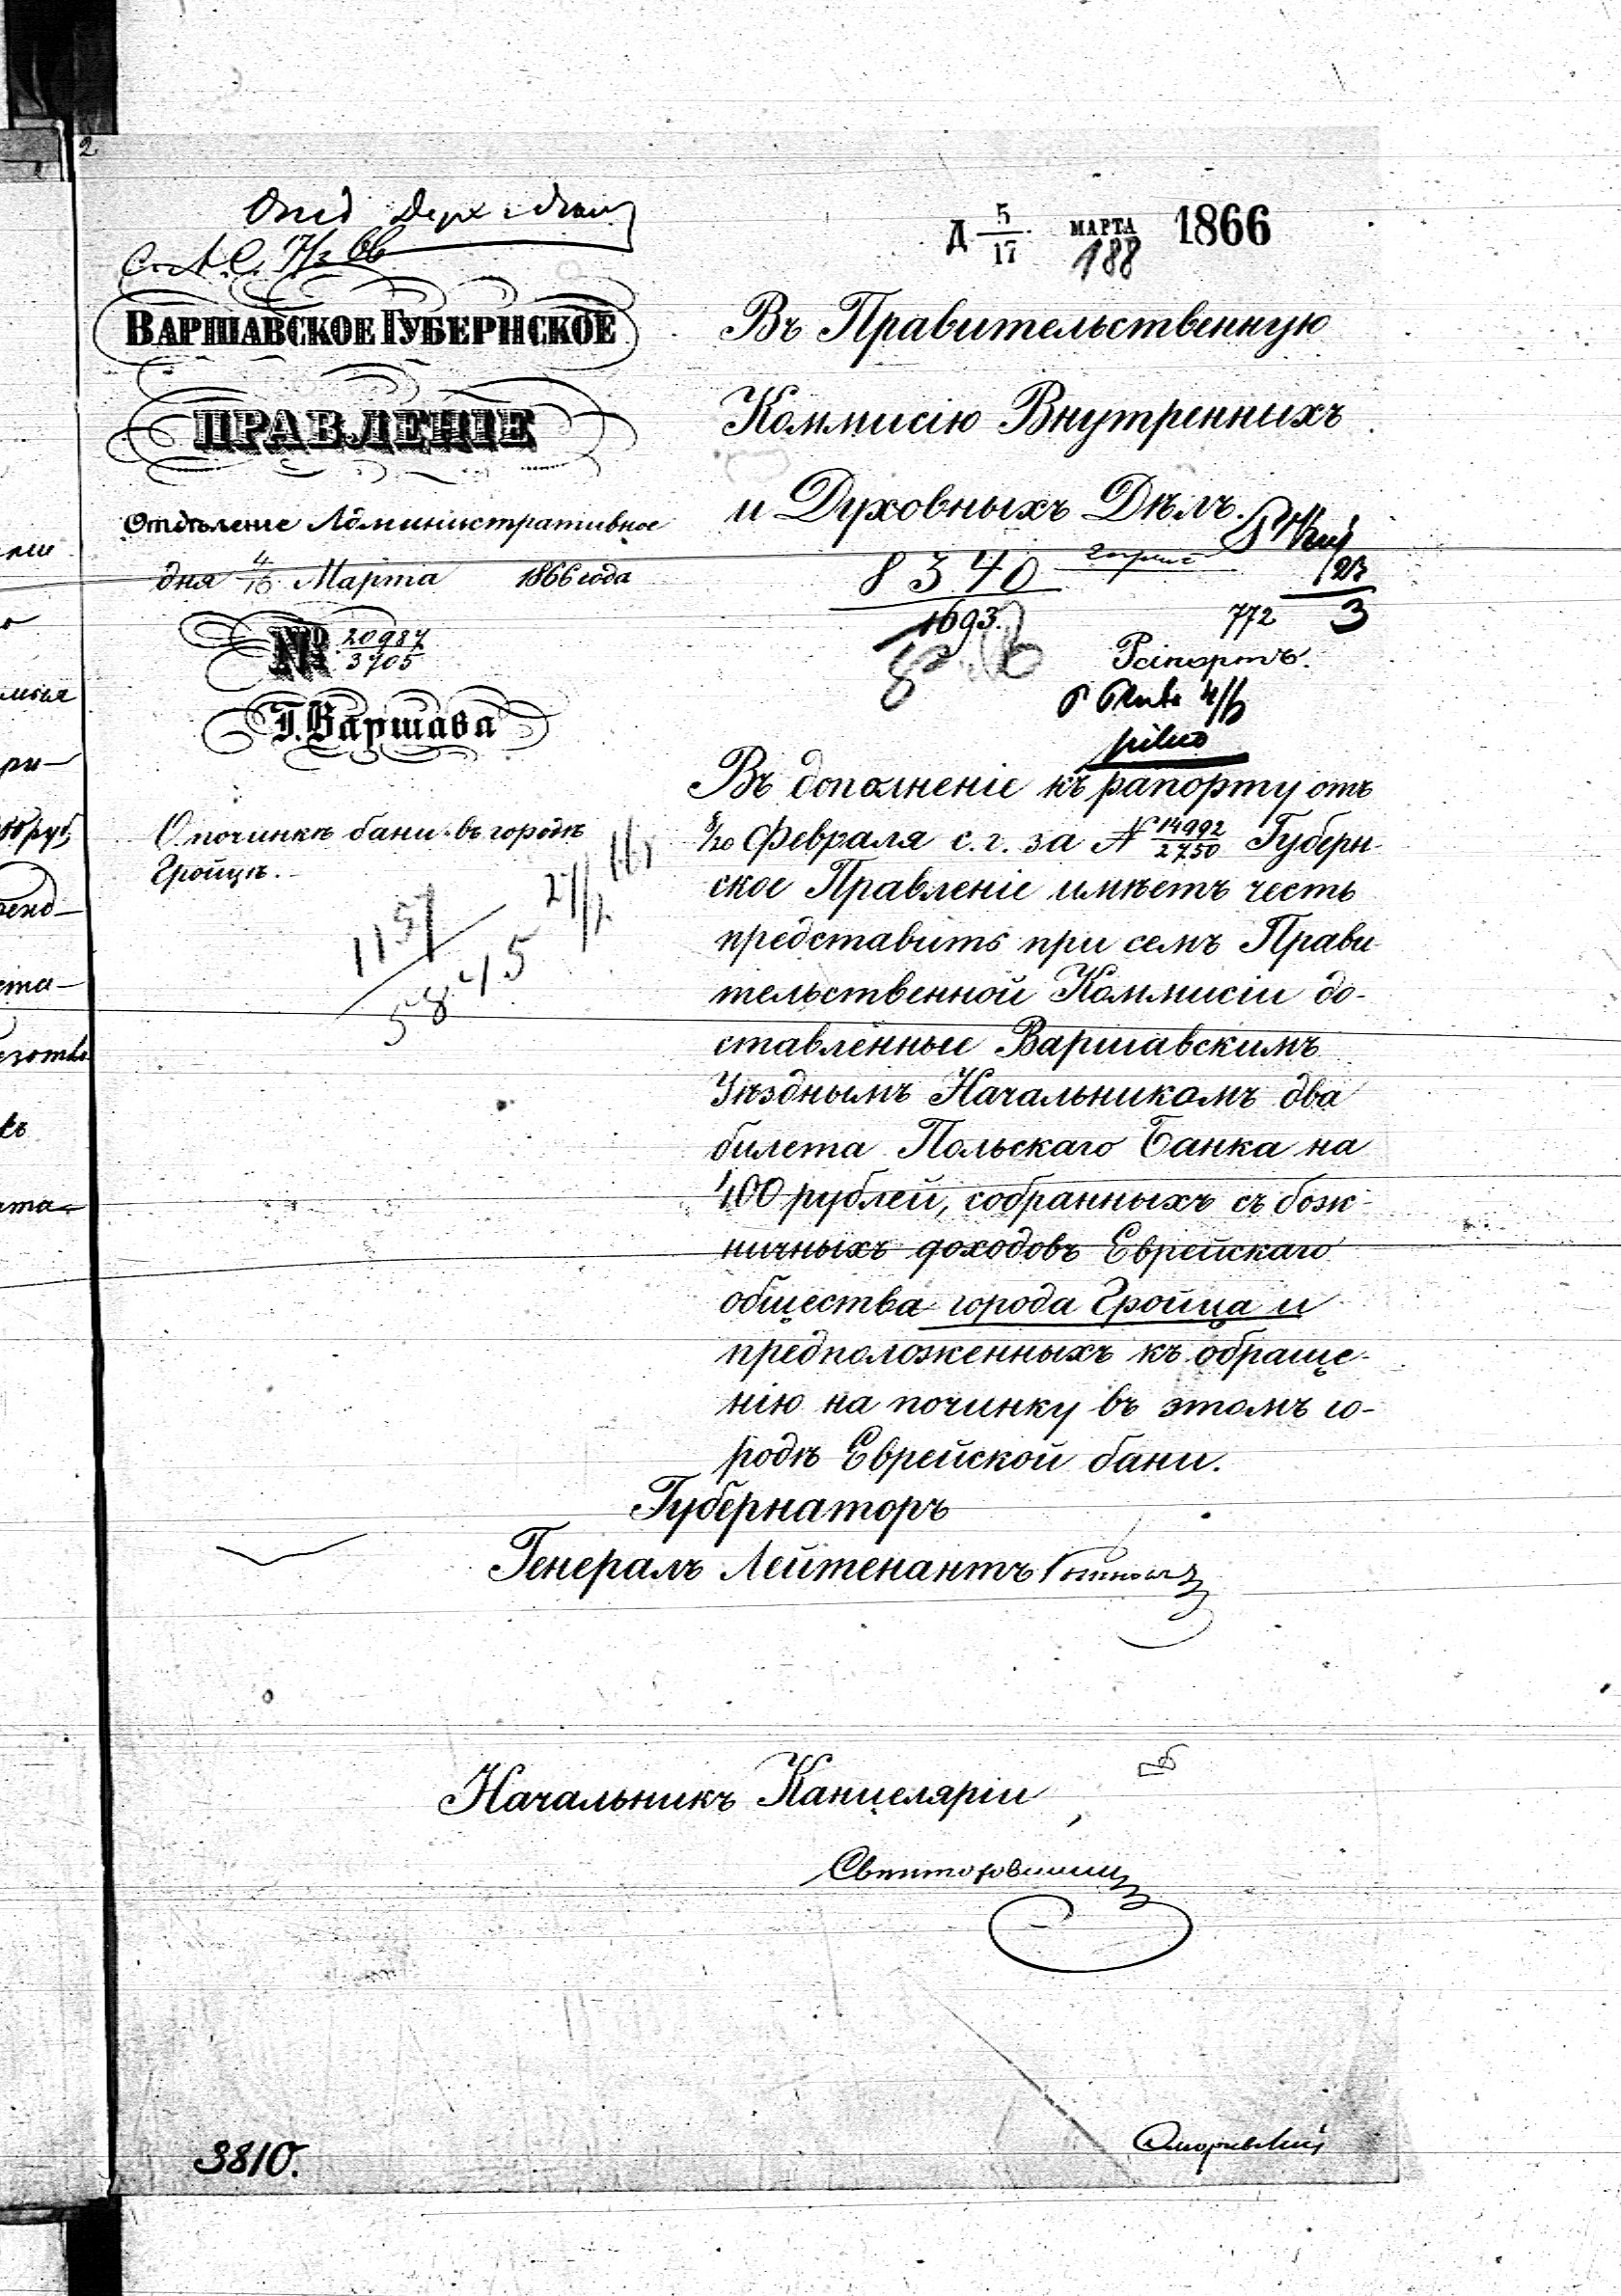 2
Д 5/17 МАРТА 1866
188
17/3 66
ВАРШАВСКОЕ ГУБЕРНСКОЕ
ПРАВЛЕНІЕ
Отдѣленіе Административное
дня 4/16 Марта 1866 года
№ 20987/3705
Г. Варшава
О починкѣ бани въ городѣ
Гройцѣ.
1157/5845
Въ Правительственную
Коммисію Внутренныхъ
и Духовныхъ Дѣлъ.
8340
1693.
772 3
Рапортъ.
pilno
Въ дополненіе къ рапорту отъ
8/20 Февраля с. г. за № 14992/2750 Губерн-
ское Правленіе имѣетъ честь
представить при семъ Прави-
тельственной Коммисіи до-
ставленные Варшавскимъ
Уѣзднымъ Начальникомъ два
билета Польскаго Банка на
400 рублей, собранныхъ съ бож-
ничныхъ доходовъ Еврейскаго
общества города Гройца и
предположенныхъ къ обраще-
нію на починку въ этомъ го-
родѣ Еврейской бани.
Губернаторъ
Генералъ Лейтенантъ
Начальникъ Канцеляріи
3810.